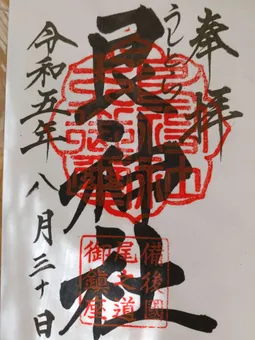 奉拝
うしとら
艮神社
令和五年八月三十日
備後國
尾之道
御鎮座
艮神社